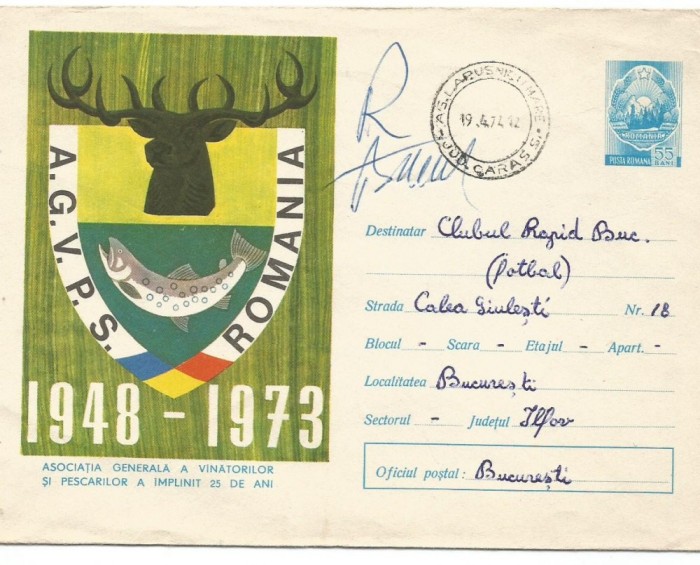 A.G.V.P.S. ROMANIA
1948 - 1973
ASOCIAȚIA GENERALĂ A VINĂTORILOR
ȘI PESCARILOR A ÎMPLINIT 25 DE ANI
R
19.4.74.12
JUD. CARAȘ S.
ROMANIA
POSTA ROMANA 55 BANI
Destinatar Clubul Rapid Buc.
(Fotbal)
Strada Calea Giulești Nr. 18
Blocul - Scara - Etajul - Apart. -
Localitatea București
Sectorul - Județul Ilfov
Oficiul poștal: București